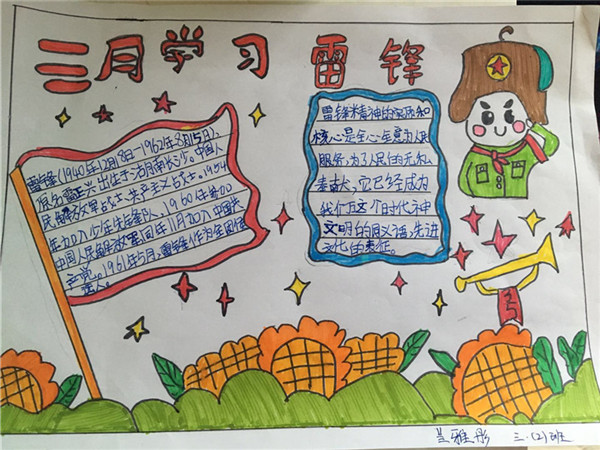 三月学习 雷锋
雷锋(1940年12月18日-1962年8月15日),
原名雷正兴出生于湖南长沙。中国人
民解放军战士共产主义战士。1954
年加入少年先锋队,1960年参加
中国人民解放军同年11月加入中国共
产党。1961年5月,雷锋作为全国代
表人。
雷锋精神的实质和
核心是全心全意为人民
服务,为了人民的无私
奉献,它已经成为
我们这个时代神
文明的同义词、先进
文化的象征。
兰雅彤 三.(2)班